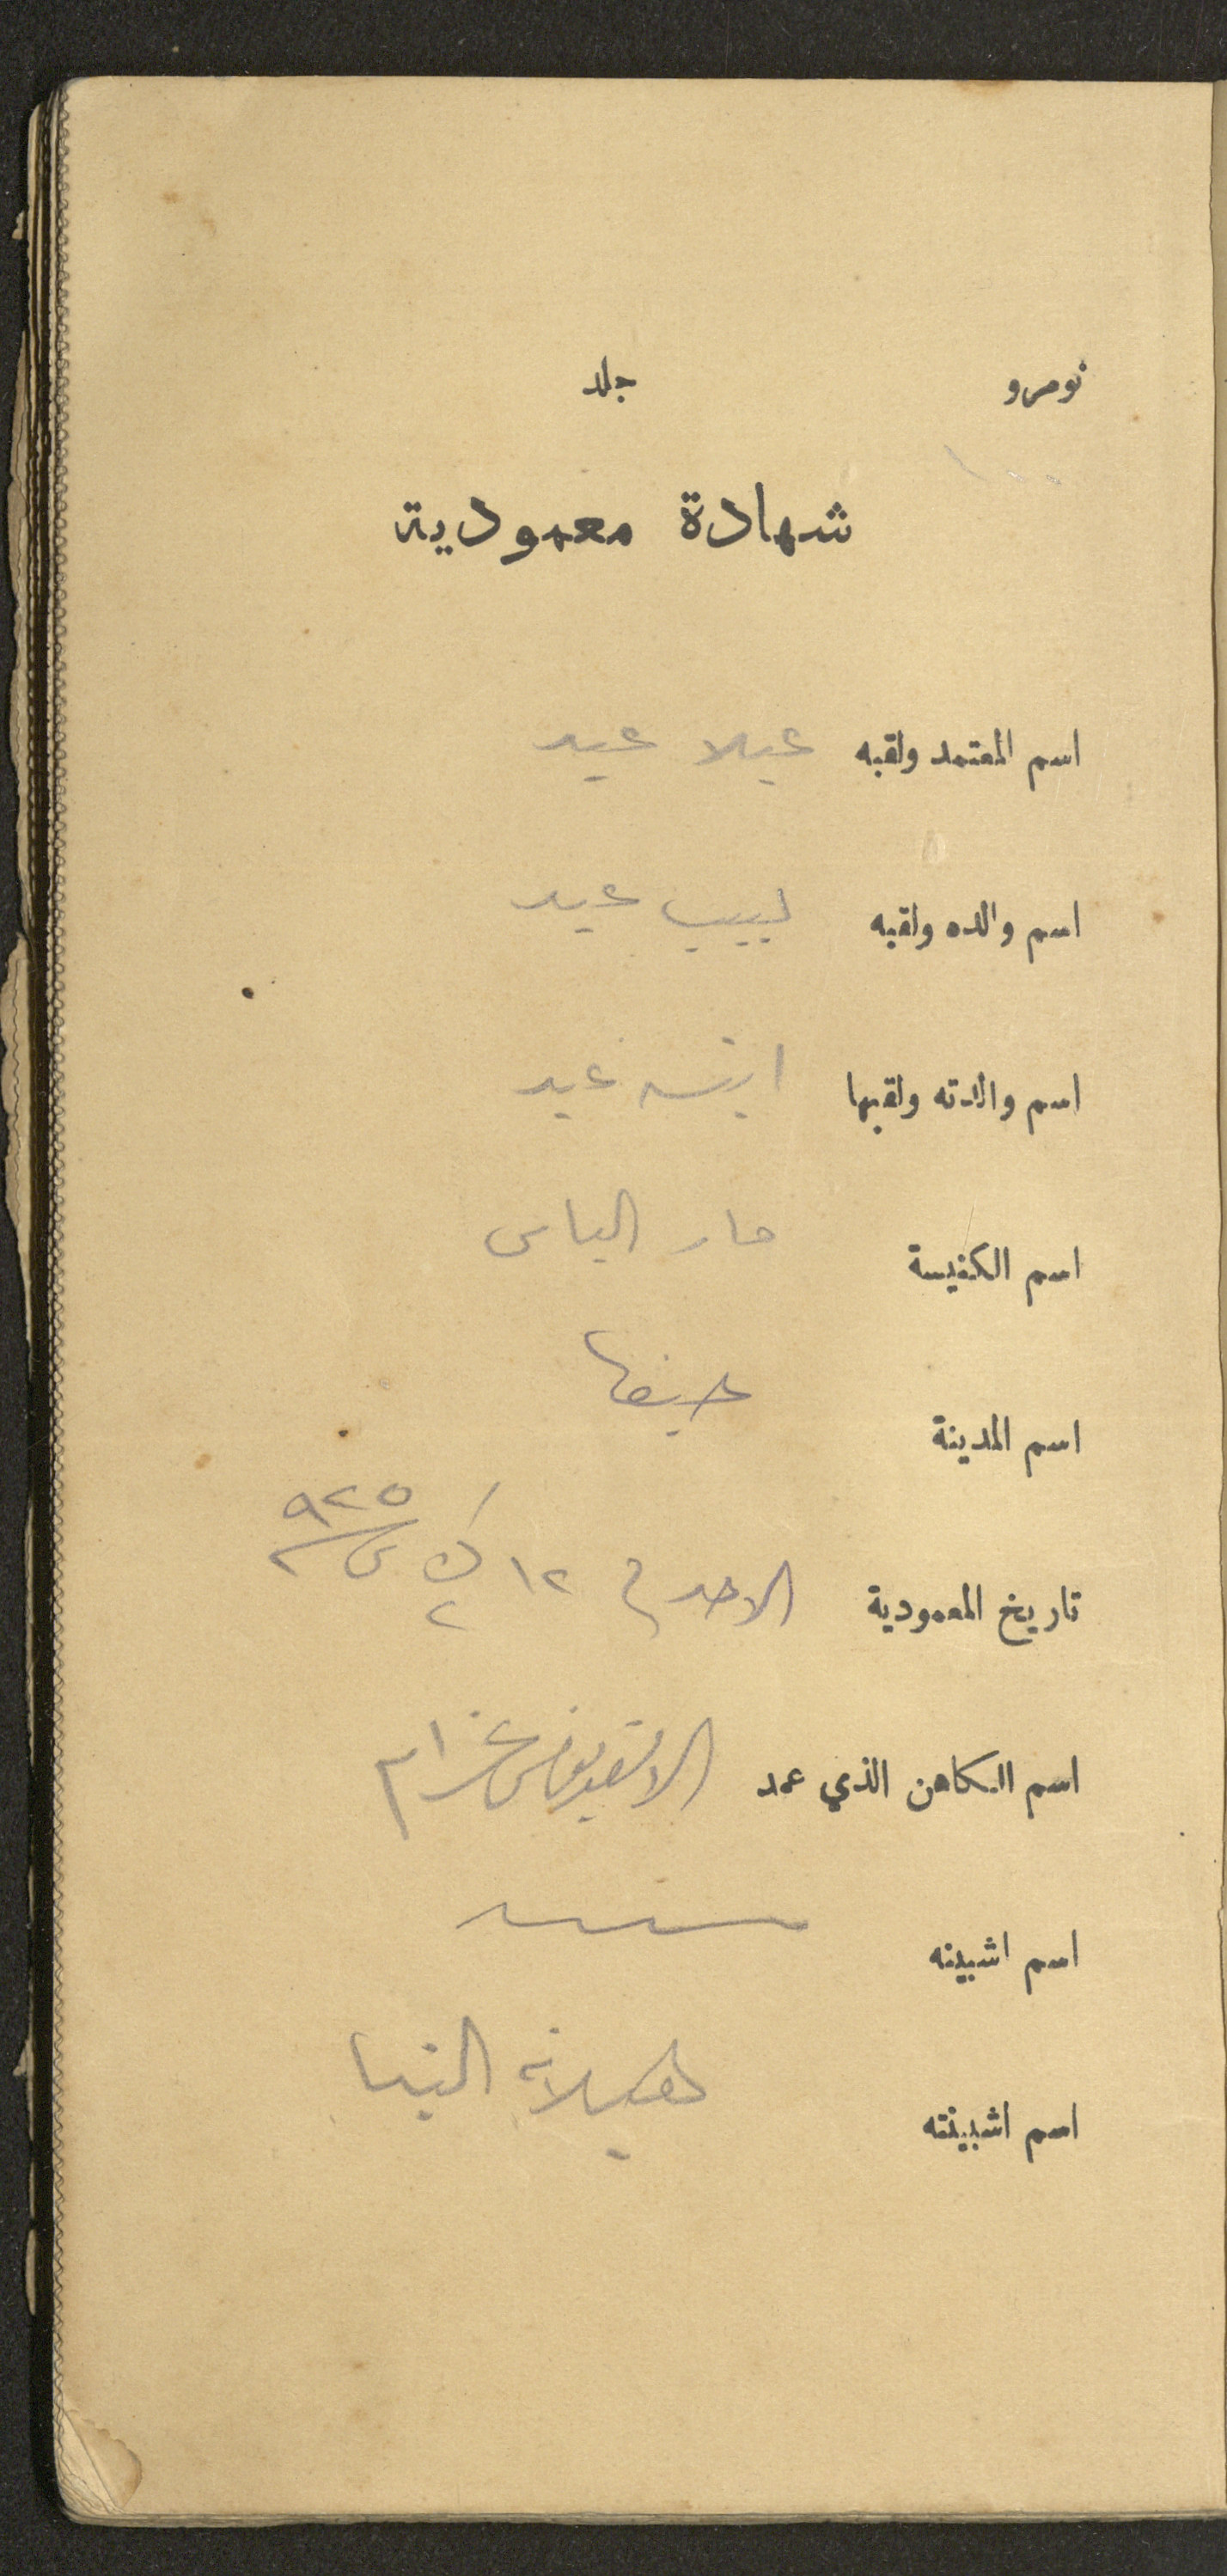 نومرو جلد
شهادة معمودية
اسم المعتمد ولقبه عبلا عيد
اسم والده ولقبه لبيب عيد
اسم والدته ولقبها عيد
اسم الكنيسة مار الياس
اسم المدينة حيفا
تاريخ المعمودية الاحد في ١٢ ك ٢ س ٩٢٥
اسم الكاهن الذي عمد غرام
اسم اشبينه
اسم اشبينته هيلانه